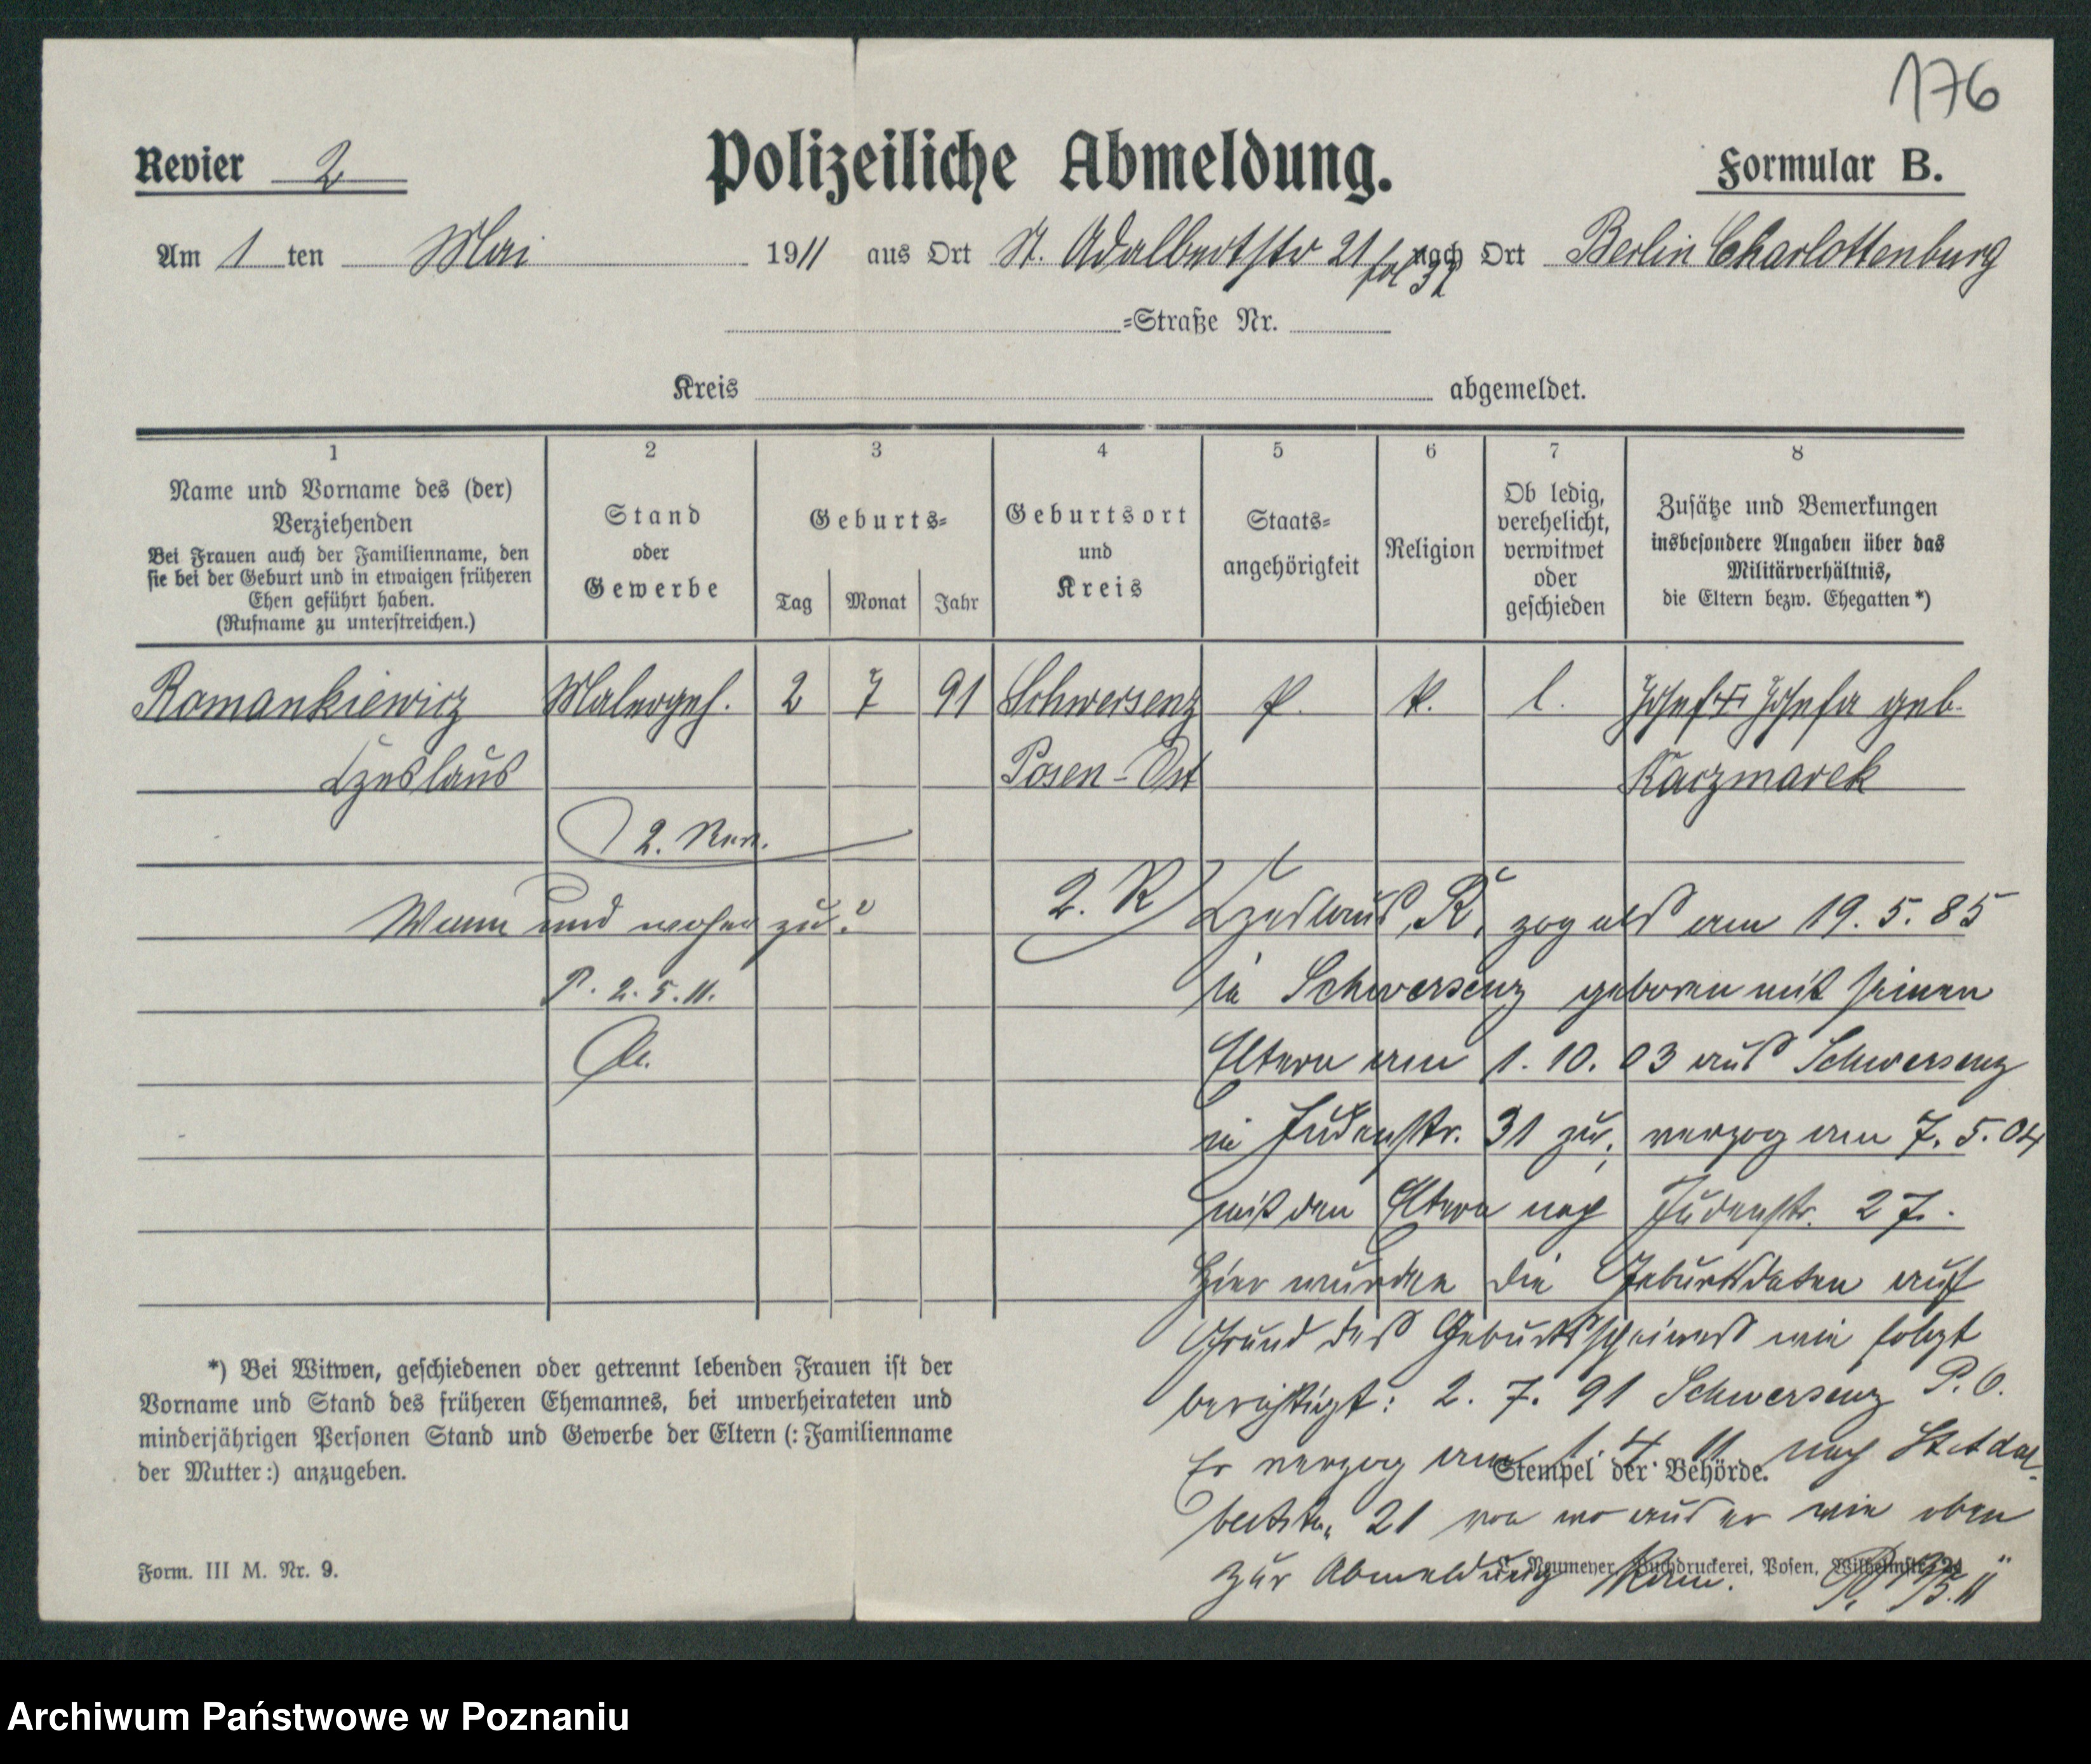 176
Revier 2 Polizeiliche Abmeldung. Formular B.
Am 1 ten Mai 1911 aus Ort St. Adalbertstr 21 nach Ort Berlin Charlottenburg
=Straße Nr.
Kreis abgemeldet.
1 2 3 4 5 6 7 8
Name und Vorname des (der)
Verziehenden
Bei Frauen auch der Familienname, den
sie bei der Geburt und in etwaigen früheren
Ehen geführt haben.
(Rufname zu unterstreichen.)
Stand
oder
Gewerbe
Geburts=
Tag Monat Jahr
Geburtsort
und
Kreis
Staats=
angehörigkeit
Religion
Ob ledig,
verehelicht,
verwitwet
oder
geschieden
Zusätze und Bemerkungen
insbesondere Angaben über das
Militärverhältnis,
die Eltern bezw. Ehegatten *)
Romankiewicz Malergeh. 2 7 91 Schwersenz p. k. l. Josef + Josefa geb.
Czeslaus Posen-Ost Kaczmarek
2. Rev.
Wann und woher zu?
P. 2. 5. 11.
2. R Czeslaus R. zog als am 19. 5. 85
in Schwersenz geboren mit seinen
Eltern am 1. 10. 03 aus Schwersenz
in Judenstr. 31 zu; verzog am 7. 5. 04
mit den Eltern nach Judenstr. 27.
Hier wurden die Geburtsdaten auf
Grund des Geburtsscheines wie folgt
berichtigt: 2. 7. 91 Schwersenz P. O.
Er verzog am 1. 4. 11 nach St. Adal-
bertstr. 21 von wo aus er wie oben
zur Abmeldung kam. P. 19/5. 11
*) Bei Witwen, geschiedenen oder getrennt lebenden Frauen ist der
Vorname und Stand des früheren Ehemannes, bei unverheirateten und
minderjährigen Personen Stand und Gewerbe der Eltern (: Familienname
der Mutter :) anzugeben.
Stempel der Behörde.
Form. III M. Nr. 9.
Neumeyer, Buchdruckerei, Posen, Wilhelmstr.
Archiwum Państwowe w Poznaniu